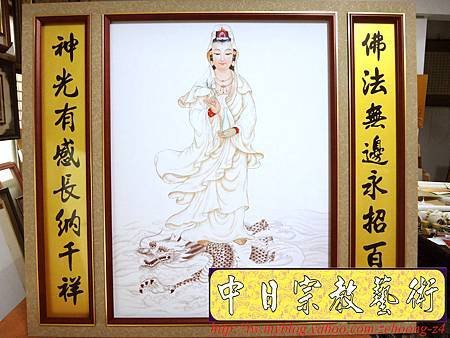 佛法無邊永招百
神光有感長納千祥
中日宗教藝術
http://tw.myblog.yahoo.com/zehoong-z4